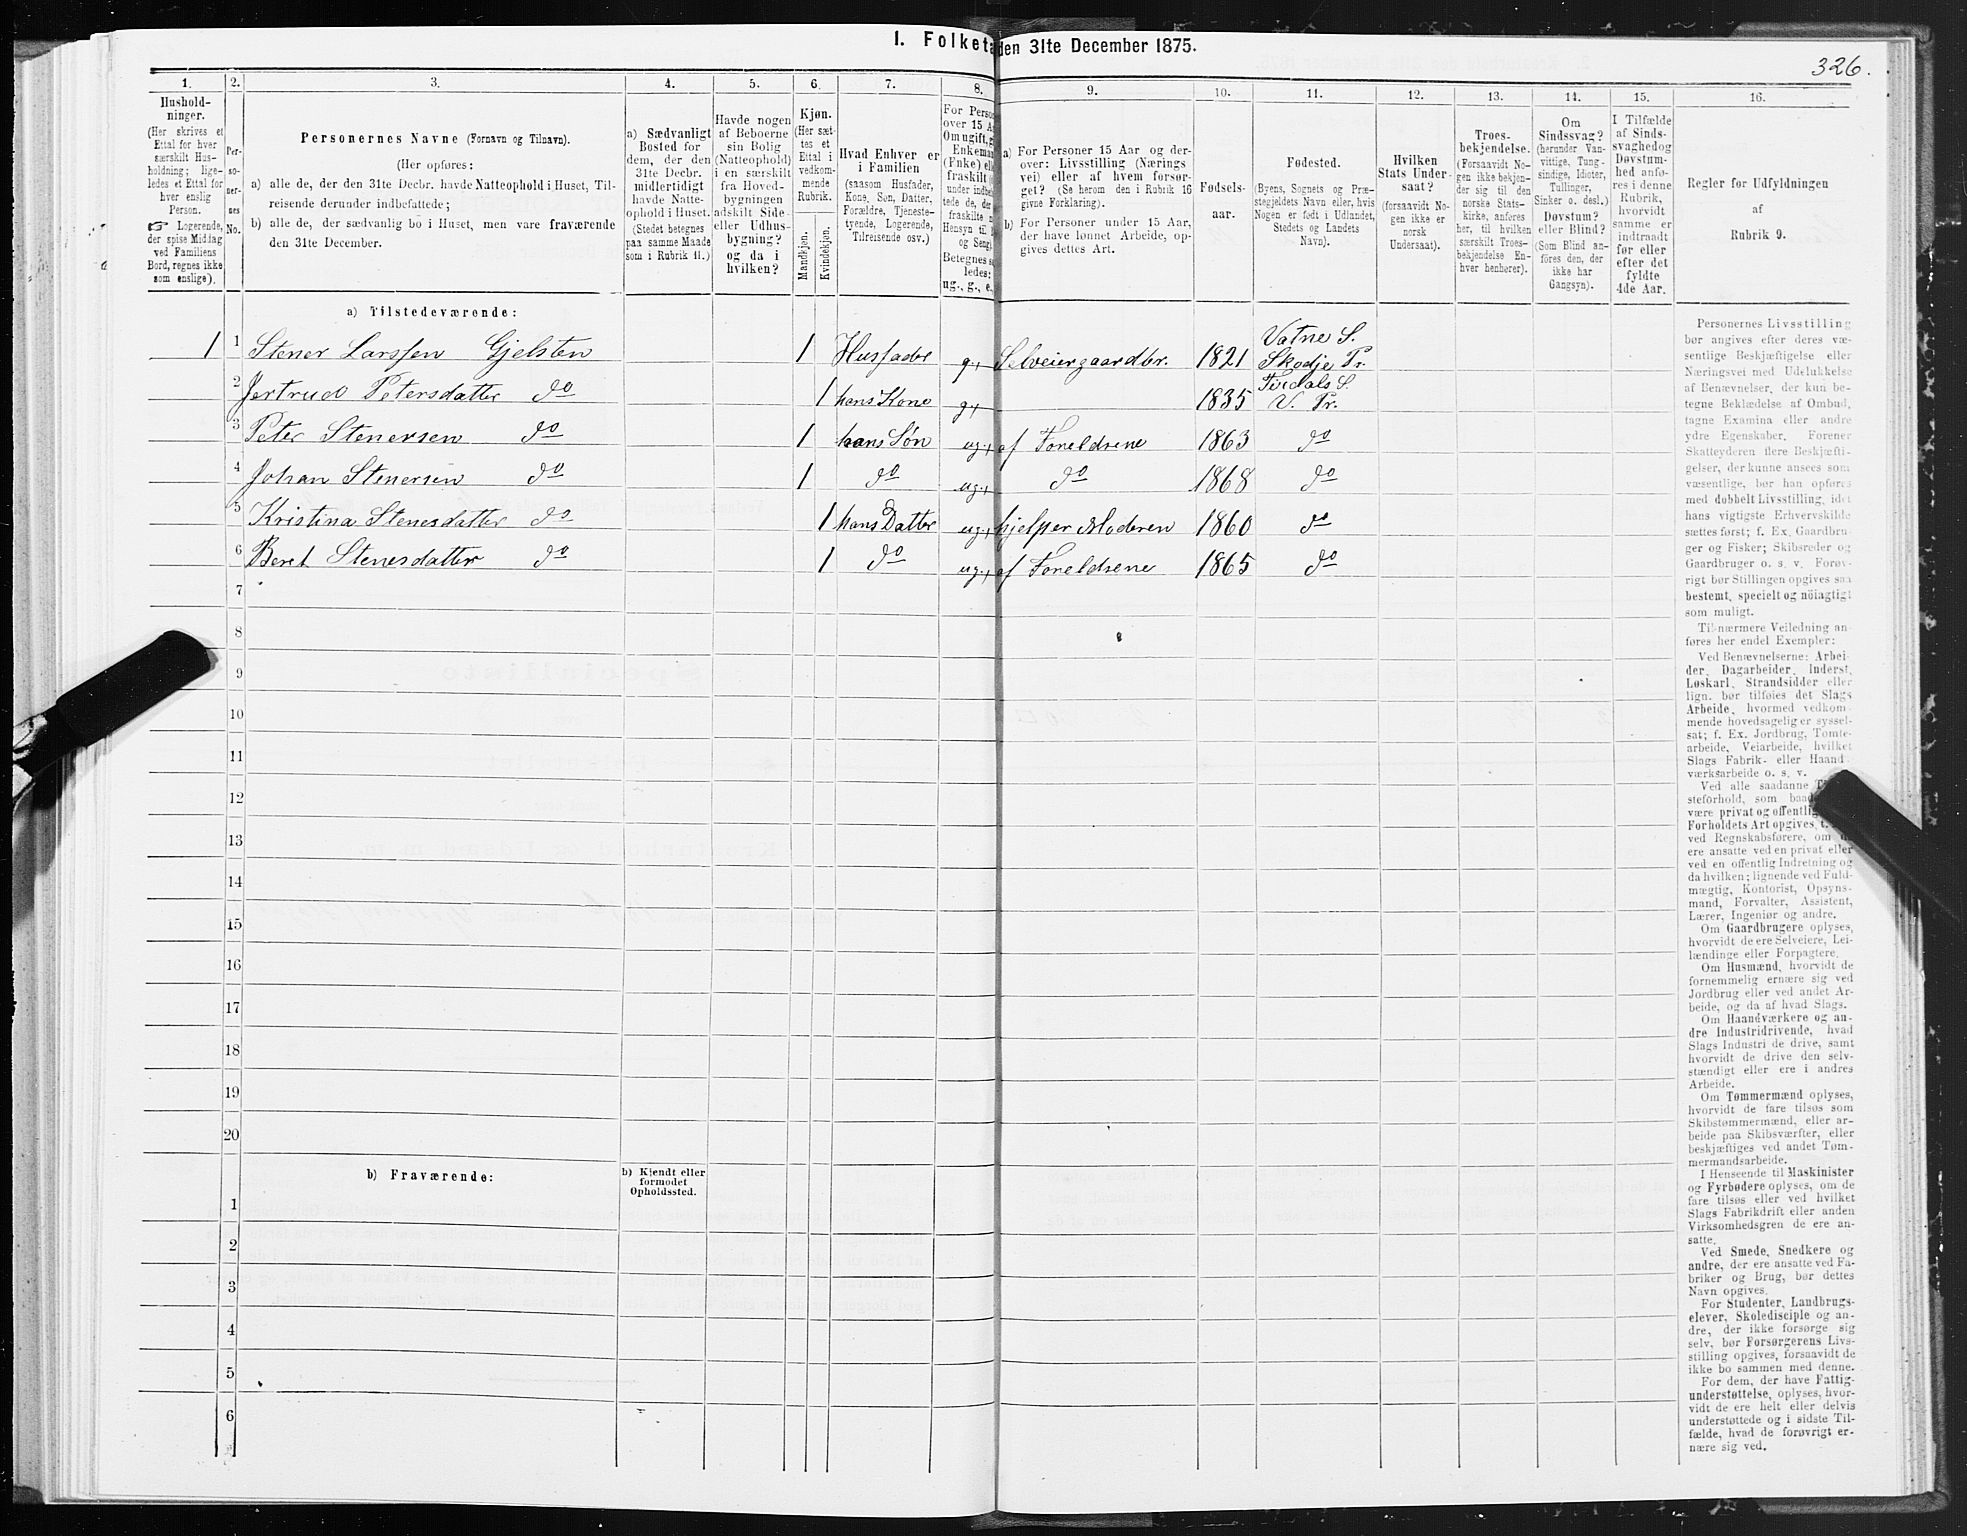 I. Folketæ
den 31te December 1875.
326.
1. 2. 3. 4. 5. 6. 7. 8. 9. 10. 11. 12. 13. 14. 15. 16.
Hushold-
ninger.
(Her skrives et
Ettal for hver
særskilt Hus-
holdning; lige-
ledes et Ettal for
hver enslig
Person.
☞ Logerende,
der spise Middag
ved Familiens
Bord, regnes ikke
som enslige).
Per-
so-
ner-
nes
No.
Personernes Navne (Fornavn og Tilnavn).
(Her opføres:
a) alle de, der den 31te Decbr. havde Natteophold i Huset, Til-
reisende derunder indbefattede;
b) alle de, der sædvanlig bo i Huset, men vare fraværende
den 31te December.
a) Sædvanligt
Bosted for
dem, der den
31te Decbr.
midlertidigt
havde Natte-
ophold i Huset.
(Stedet betegnes
paa samme Maade
som i Rubrik 11.)
Havde nogen
af Beboerne
sin Bolig
(Natteophold)
i en særskilt
fra Hoved-
bygningen
adskilt Side-
eller Udhus-
bygning?
og da i
hvilken?
Kjøn.
(Her sæt-
tes et
Ettal i
vedkom-
mende
Rubrik.
Mandkjøn.
Kvindekjøn.
Hvad Enhver er
i Familien
(saasom Husfader,
Kone, Søn, Datter,
Forældre, Tjeneste-
tyende, Logerende,
Tilreisende osv.)
For Perso
over 15 A
Om ugift, g
Enkeman
(Fnke) ell
fraskilt
under indbe
tede de, de
fraskilte
Hensyn til
og Seng).
Betegnes s
ledes:
ug., g., e.,
a) For Personer 15 Aar og der-
over: Livsstilling (Nærings
vei) eller af hvem forsør-
get? (Se herom den i Rubrik 16
givne Forklaring).
b) For Personer under 15 Aar,
der have lønnet Arbeide, op-
gives dettes Art.
Fødsels-
aar.
Fødested.
(Byens, Sognets og Præ-
stegjeldets Navn eller, hvis
Nogen er født i Udlandet,
Stedets og Landets
Navn).
Hvilken
Stats Under-
saat?
(forsaavidt No-
gen ikke er
norsk
Undersaat).
Troes-
bekjendelse.
(Forsaavidt No-
gen ikke bekjen-
der sig til den
norske Stats-
kirke, anføres
her, til hvilken
særskilt Troes-
bekjendelse En-
hver henhører).
Om
Sindssvag?
(herunder Van-
vittige, Tung-
sindige, Idioter,
Tullinger,
Sinker o. desl.)
Døvstum?
eller Blind?
(Som Blind an-
føres den, der
ikke har
Gangsyn).
I Tilfælde
af Sinds-
svaghed og
Døvstum-
hed anfø-
res i denne
Rubrik,
hvorvidt
samme er
indtraadt
før eller
efter det
fyldte
4de Aar.
Regler for Udfyldningen
af
Rubrik 9.
a) Tilstedeværende:
1 1 Stener Larssen Gjelsten 1 Husfader g., Selveiergaardbr. 1821 Vatne S. Skodje Pr.
2 Jertrud Petersdatter do 1 hans Kone g., 1835 Firdals S. V. Pr.
3 Peter Stenersen do 1 hans Søn ug., af Foreldrene 1863 do
4 Johan Stenersen do 1 do ug., do 1868 do
5 Kristina Stenesdatter do 1 hans Datter ug., hjelper Moderen 1860 do
6 Beret Stenesdatter do 1 do ug., af Foreldrene 1865 do
7
8
9
10
11
12
13
14
15
16
17
18
19
20
b) Fraværende:
b) Kjendt eller
formodet
Opholdssted.
1
2
3
4
5
6
Personernes Livsstilling
bør angives efter deres væ-
sentlige Beskjæftigelse eller
Næringsvei med Udelukkelse
af Benævnelser, der kun be-
tegne Beklædelse af Ombud,
tagne Examina eller andre
ydre Egenskaber. Forener
Skatteyderen flere Beskjæfti-
gelser, der kunne ansees som
væsentlige, bør han opføres
med dobbelt Livsstilling, idet
hans vigtigste Erhvervskilde
sættes først; f. Ex. Gaardbru-
ger og Fisker; Skibsreder og
Gaardbruger o. s. v. Forøv-
rigt bør Stillingen opgives saa
bestemt, specielt og nöiagtigt
som muligt.
Til nærmere Veiledning an-
føres her endel Exempler:
Ved Benævnelserne: Arbei-
der, Dagarbeider, Inderst,
Løskarl, Strandsidder eller
lign. bør tilføies det Slags
Arbeide, hvormed vedkom-
mende hovedsagelig er syssel-
sat; f. Ex. Jordbrug, Tomte-
arbeide, Veiarbeide, hvilket
Slags Fabrik- eller Haand-
værksarbeide o. s. v.
Ved alle saadanne
steforhold, som baad
være privat og offentlig
Forholdets Art opgives,
ved Regnskabsførere, om
ere ansatte ved en privat eller
ved en offentlig Indretning og
da hvilken; lignende ved Fuld-
mægtig, Kontorist, Opsyns-
mand, Forvalter, Assistent,
Lærer, Ingeniør og andre.
Om Gaardbrugere oplyses,
hvorvidt de ere Selveiere, Lei-
lændinge eller Forpagtere.
Om Husmænd, hvorvidt de
fornemmelig ernære sig ved
Jordbrug eller ved andet Ar-
beide, og da af hvad Slags.
Om Haandværkere og an-
dre Industridrivende, hvad
Slags Industri de drive, samt
hvorvidt de drive den selv-
stændigt eller ere i andres
Arbeide.
Om Tømmermænd oplyses,
hvorvidt de fare tilsøs som
Skibstømmermænd, eller ar-
beide paa Skibsværfter, eller
beskjæftiges ved andet Tøm-
mermandsarbeide.
I Henseende til Maskinister
og Fyrbødere oplyses, om de
fare tilsøs eller ved hvilket
Slags Fabrikdrift eller anden
Virksomhedsgren de ere an-
satte.
Ved Smede, Snedkere og
andre, der ere ansatte ved Fa-
briker og Brug, bør dettes
Navn opgives.
For Studenter, Landbrugs-
elever, Skoledisciple og an-
dre, der ikke forsørge sig
selv, bør Forsørgerens Livs-
stilling opgives, forsaavidt de
ikke bo sammen med denne.
For dem, der have Fattig-
understøttelse, oplyses, hvor-
vidt de ere helt eller delvis
understøttede og i sidste Til-
fælde, hvad de forøvrigt er-
nære sig ved.